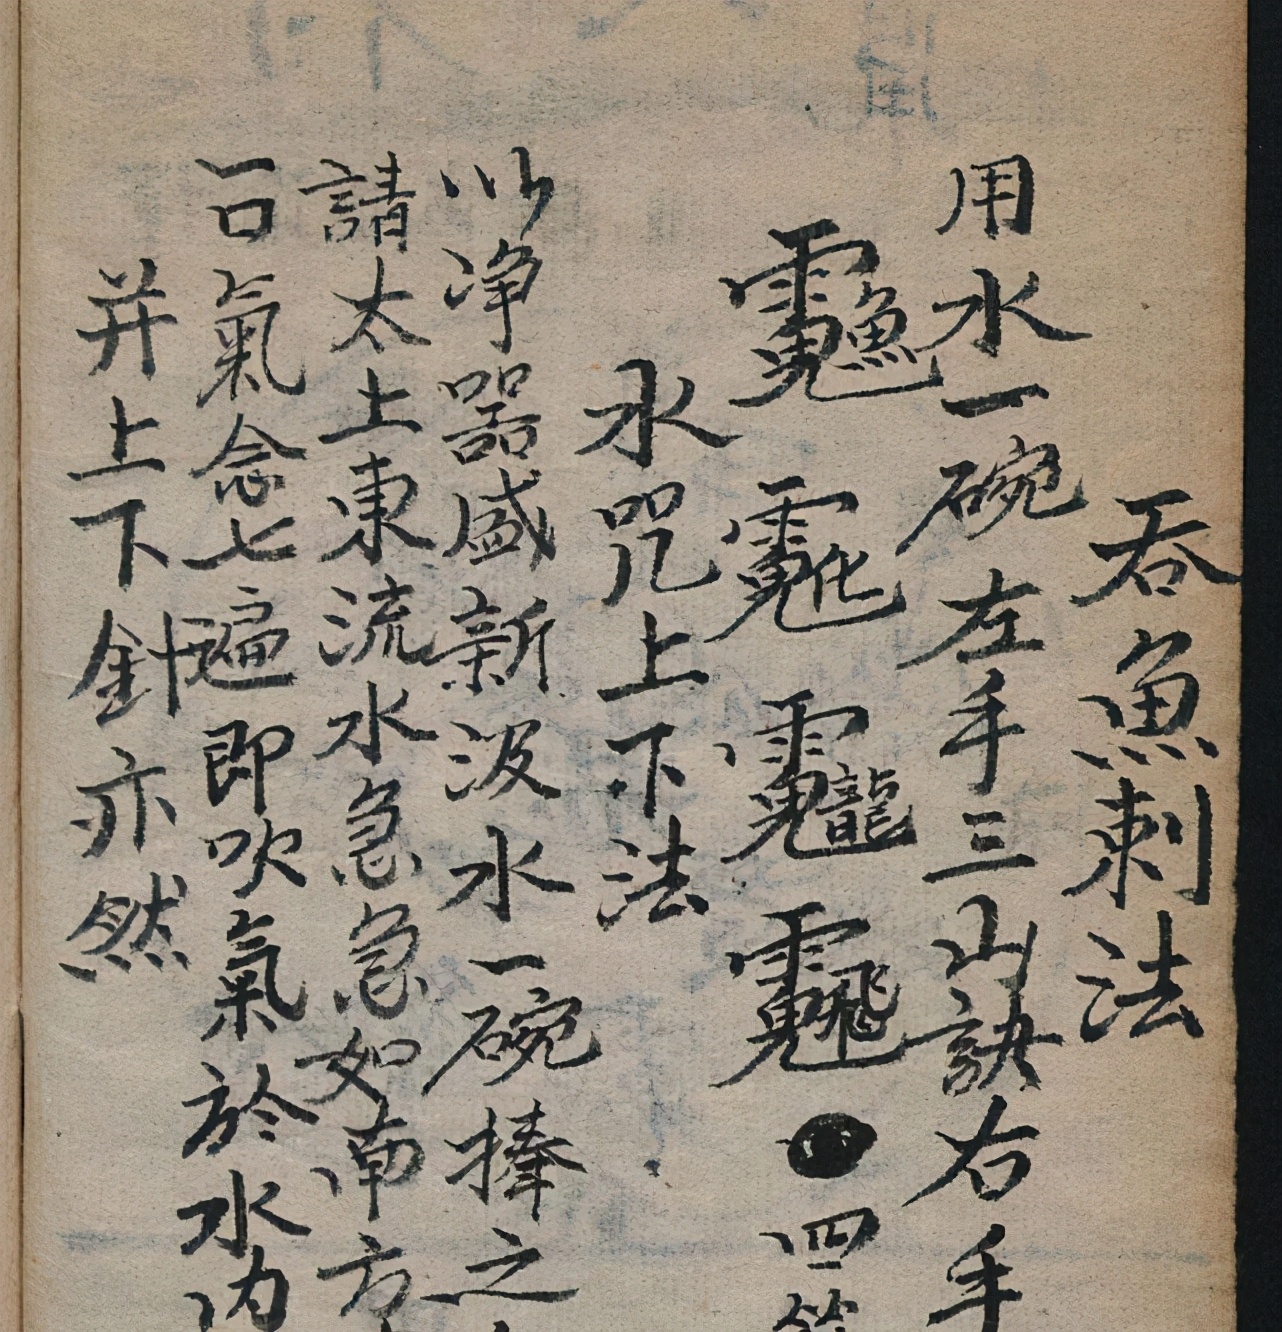 吞魚刺法
用水一碗左手三山訣右手
四
水咒上下法
以净器盛新汲水一碗捧之
請太上東流水急急如南方
一口氣念七遍即吹氣於水内
并上下針亦然